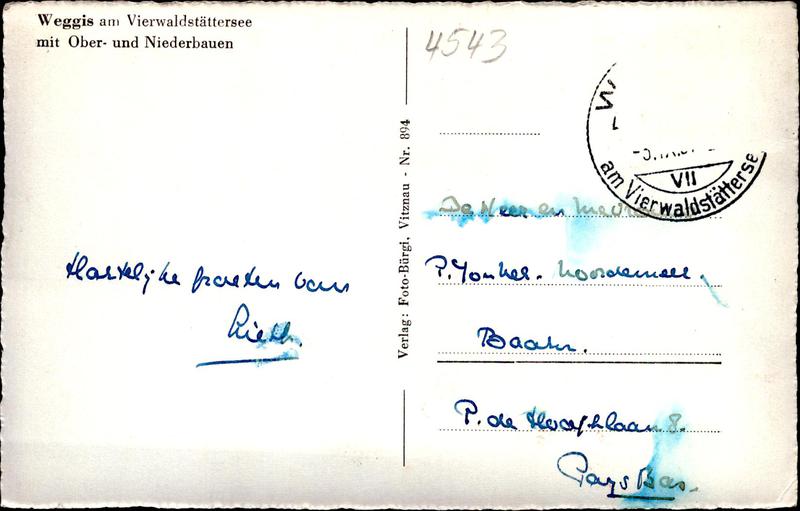 Weggis am Vierwaldstättersee
mit Ober- und Niederbauen
4543
VII
am Vierwaldstätterse
Verlag: Foto-Bürgi, Vitznau - Nr. 894
Hartelijke groeten van
De Heer en Mevr
P. Jonker-Noordemeer.
Baarn.
P. de Hooghlaan 8.
Pays Bas.